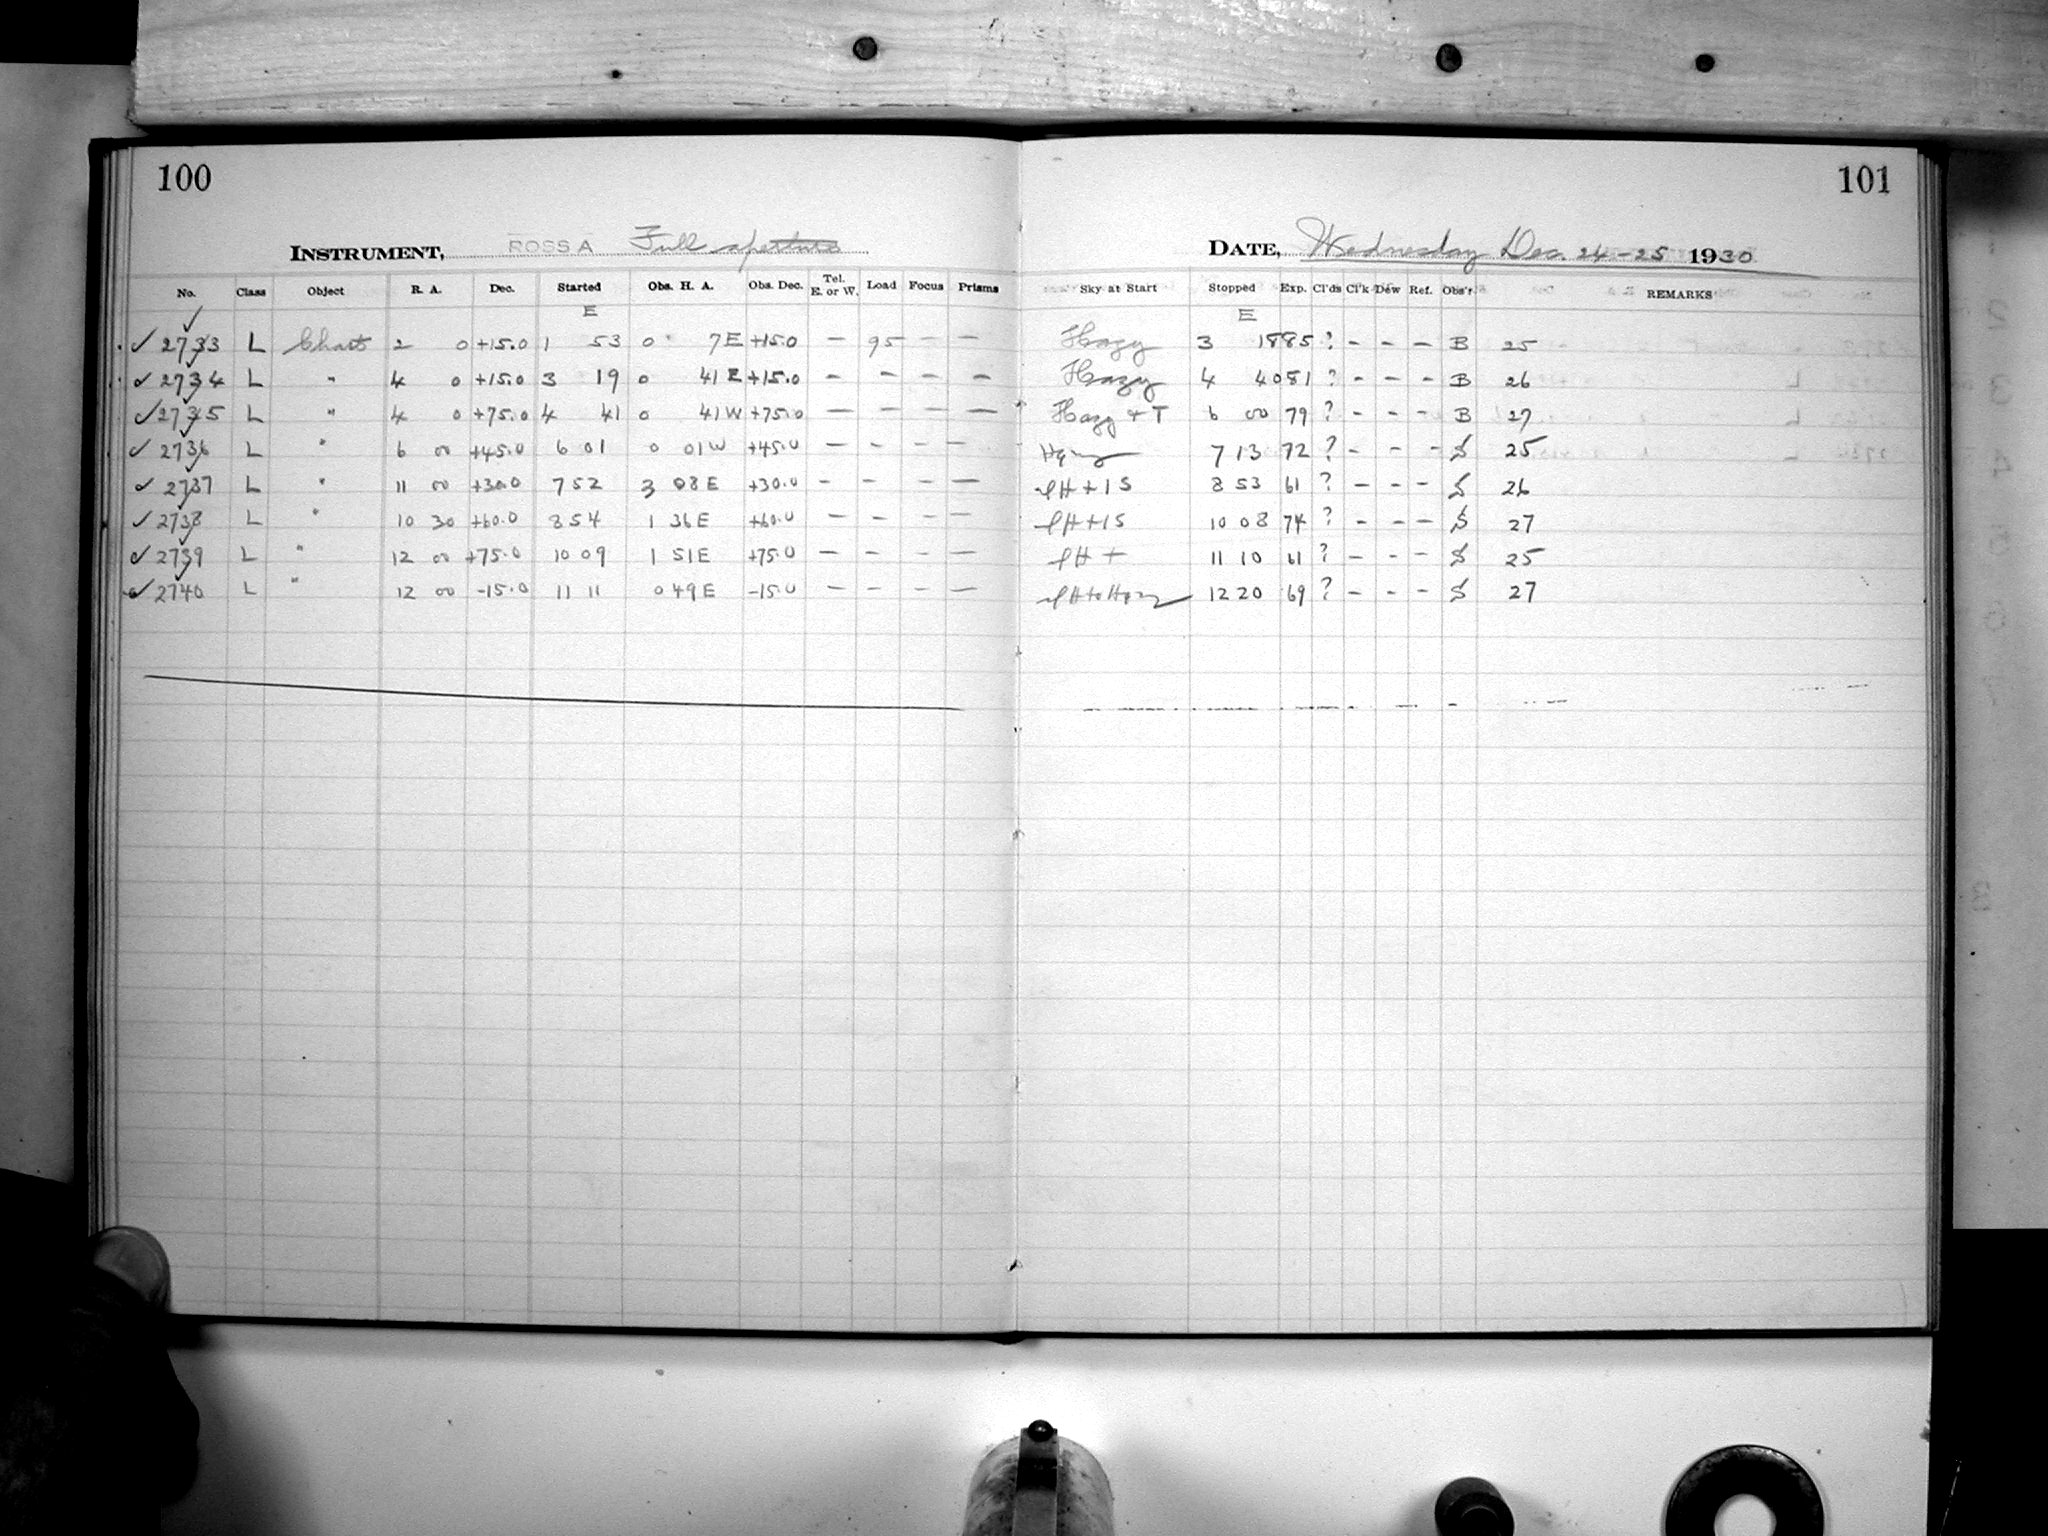 100
101
INSTRUMENT, ROSS A Full aperture
DATE, Wednesday Dec. 24-25 1930
No. Class Object R. A. Dec. Started Obs. H. A. Obs. Dec. Tel. E. or W. Load Focus Prisms Sky at Start Stopped Exp. Cl'ds Cl'k Dew Ref. Obs'r REMARKS
E E
✓ 2733 L Chart 2 0 +15.0 1 53 0 7 E +15.0 — 95 — — Hazy 3 18 85 ? - - - B 25
✓ 2734 L " 4 0 +15.0 3 19 0 41 E +15.0 — — — — Hazy 4 40 81 ? - - - B 26
✓ 2735 L " 4 0 +75.0 4 41 0 41 W +75.0 — — — — Hazy + T 6 00 79 ? - - - B 27
✓ 2736 L " 6 00 +45.0 6 01 0 01 W +45.0 — — — — Hazy 7 13 72 ? - - - S 25
✓ 2737 L " 11 00 +30.0 7 52 3 08 E +30.0 — — — — 8 53 61 ? - - - S 26
✓ 2738 L " 10 30 +60.0 8 54 1 36 E +60.0 — — — — 10 08 74 ? - - - S 27
✓ 2739 L " 12 00 +75.0 10 09 1 51 E +75.0 — — — — 11 10 61 ? - - - S 25
✓ 2740 L " 12 00 -15.0 11 11 0 49 E -15.0 — — — — 12 20 69 ? - - - S 27